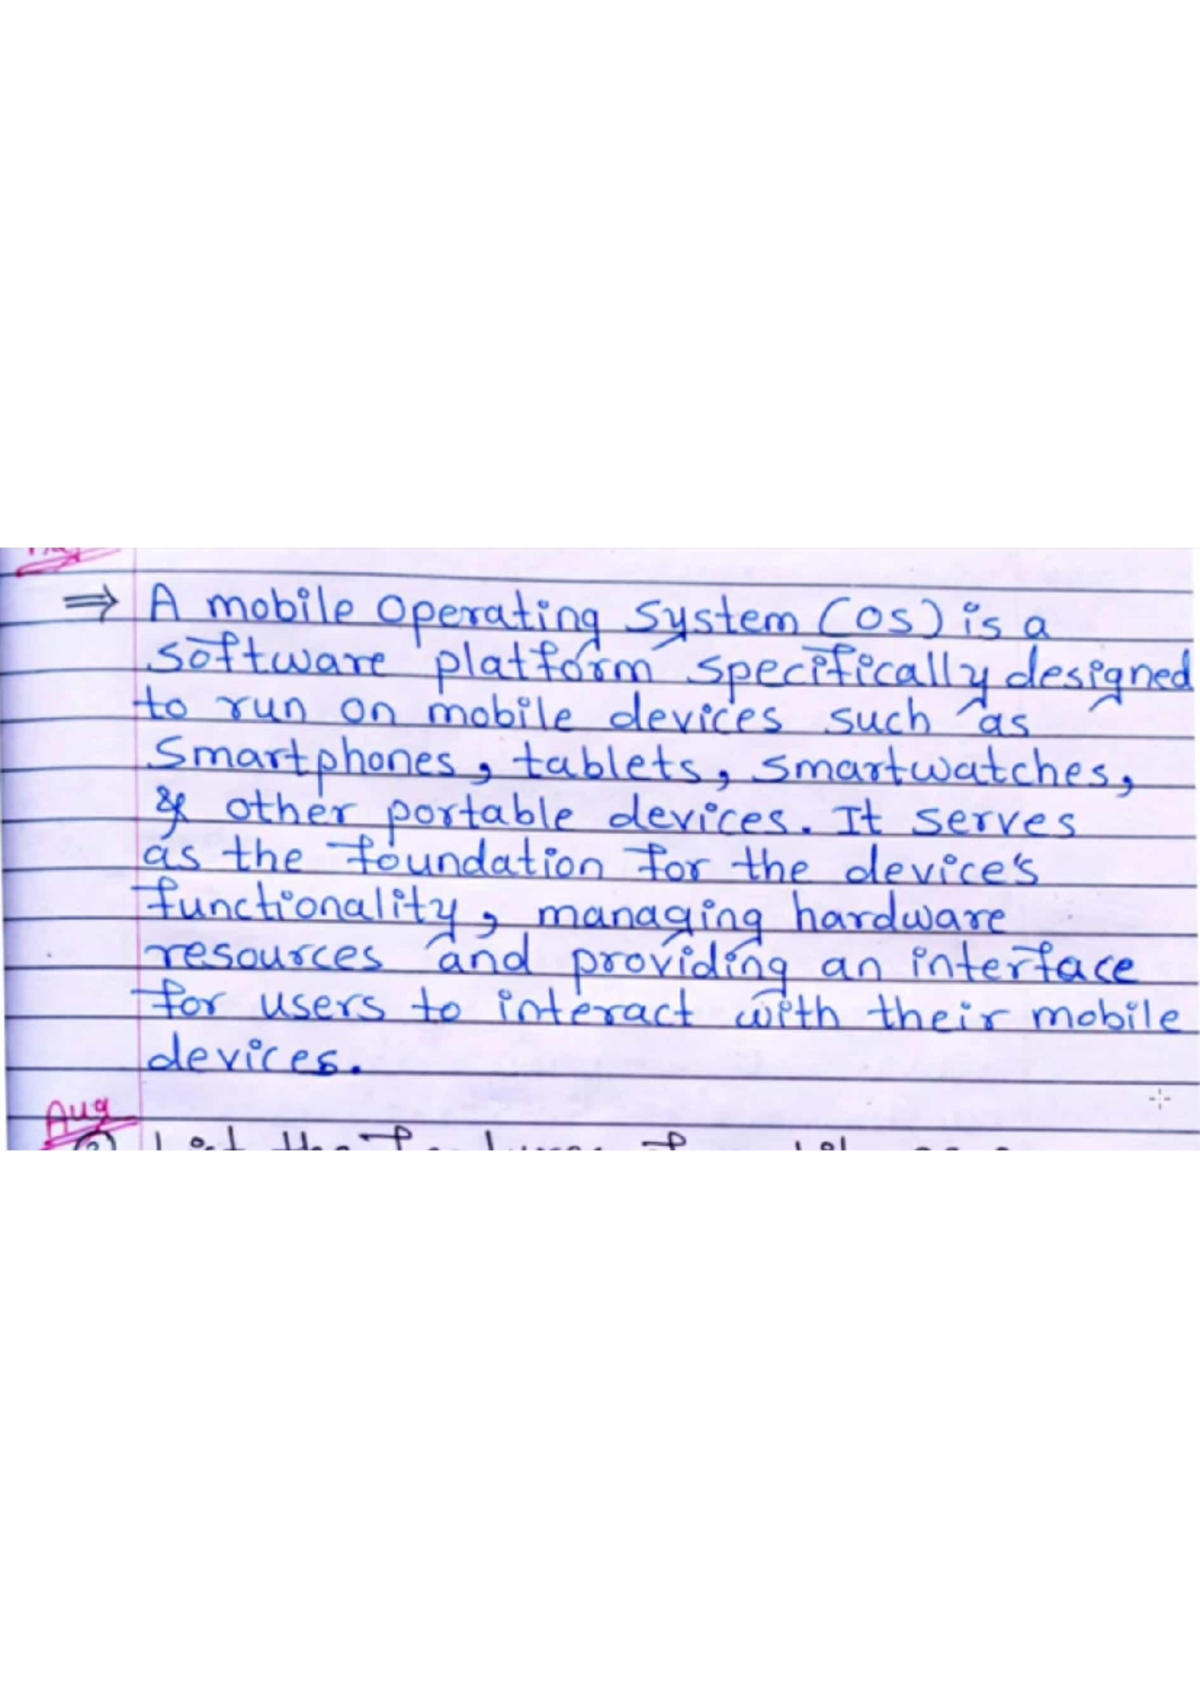 ⇒ A mobile Operating System (OS) is a
software platform specifically designed
to run on mobile devices such as
Smartphones, tablets, smartwatches,
& other portable devices. It serves
as the foundation for the device's
functionality, managing hardware
resources and providing an interface
for users to interact with their mobile
devices.
Aug